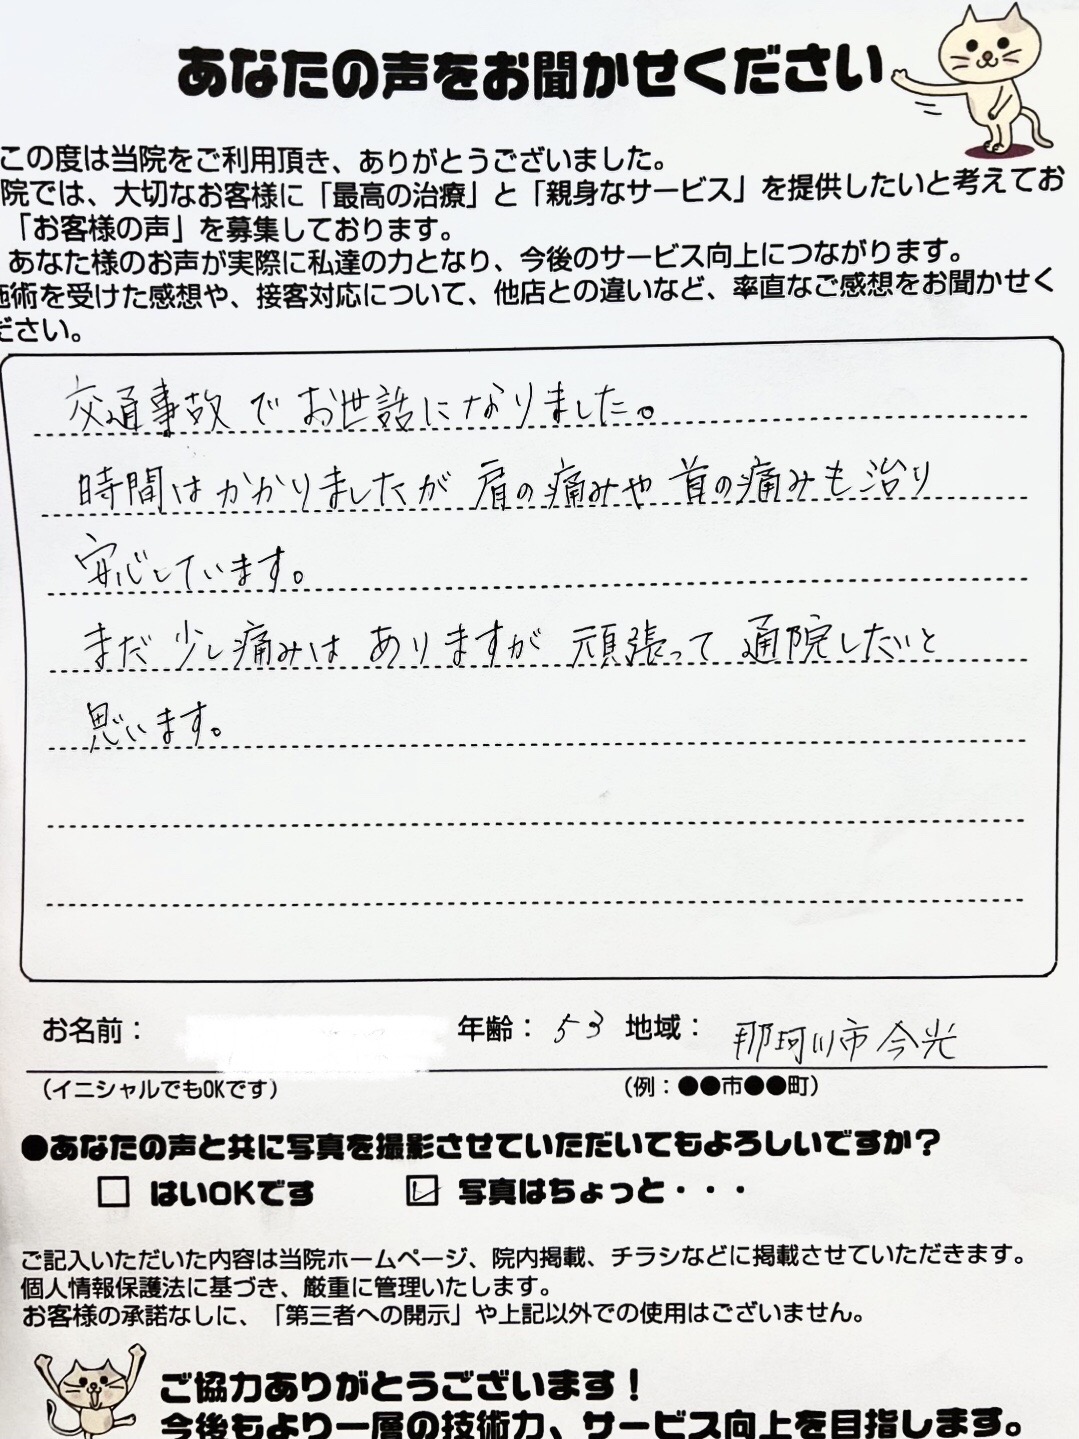 あなたの声をお聞かせください
この度は当院をご利用頂き、ありがとうございました。
院では、大切なお客様に「最高の治療」と「親身なサービス」を提供したいと考えてお
「お客様の声」を募集しております。
あなた様のお声が実際に私達の力となり、今後のサービス向上につながります。
施術を受けた感想や、接客対応について、他店との違いなど、率直なご感想をお聞かせく
ださい。
交通事故でお世話になりました。
時間はかかりましたが肩の痛みや首の痛みも治り
安心しています。
まだ少し痛みはありますが頑張って通院したいと
思います。
お名前: 年齢:53 地域:那珂川市今光
(イニシャルでもOKです) (例:●●市●●町)
●あなたの声と共に写真を撮影させていただいてもよろしいですか?
□ はいOKです ☑ 写真はちょっと・・・
ご記入いただいた内容は当院ホームページ、院内掲載、チラシなどに掲載させていただきます。
個人情報保護法に基づき、厳重に管理いたします。
お客様の承諾なしに、「第三者への開示」や上記以外での使用はございません。
ご協力ありがとうございます!
今後もより一層の技術力、サービス向上を目指します。